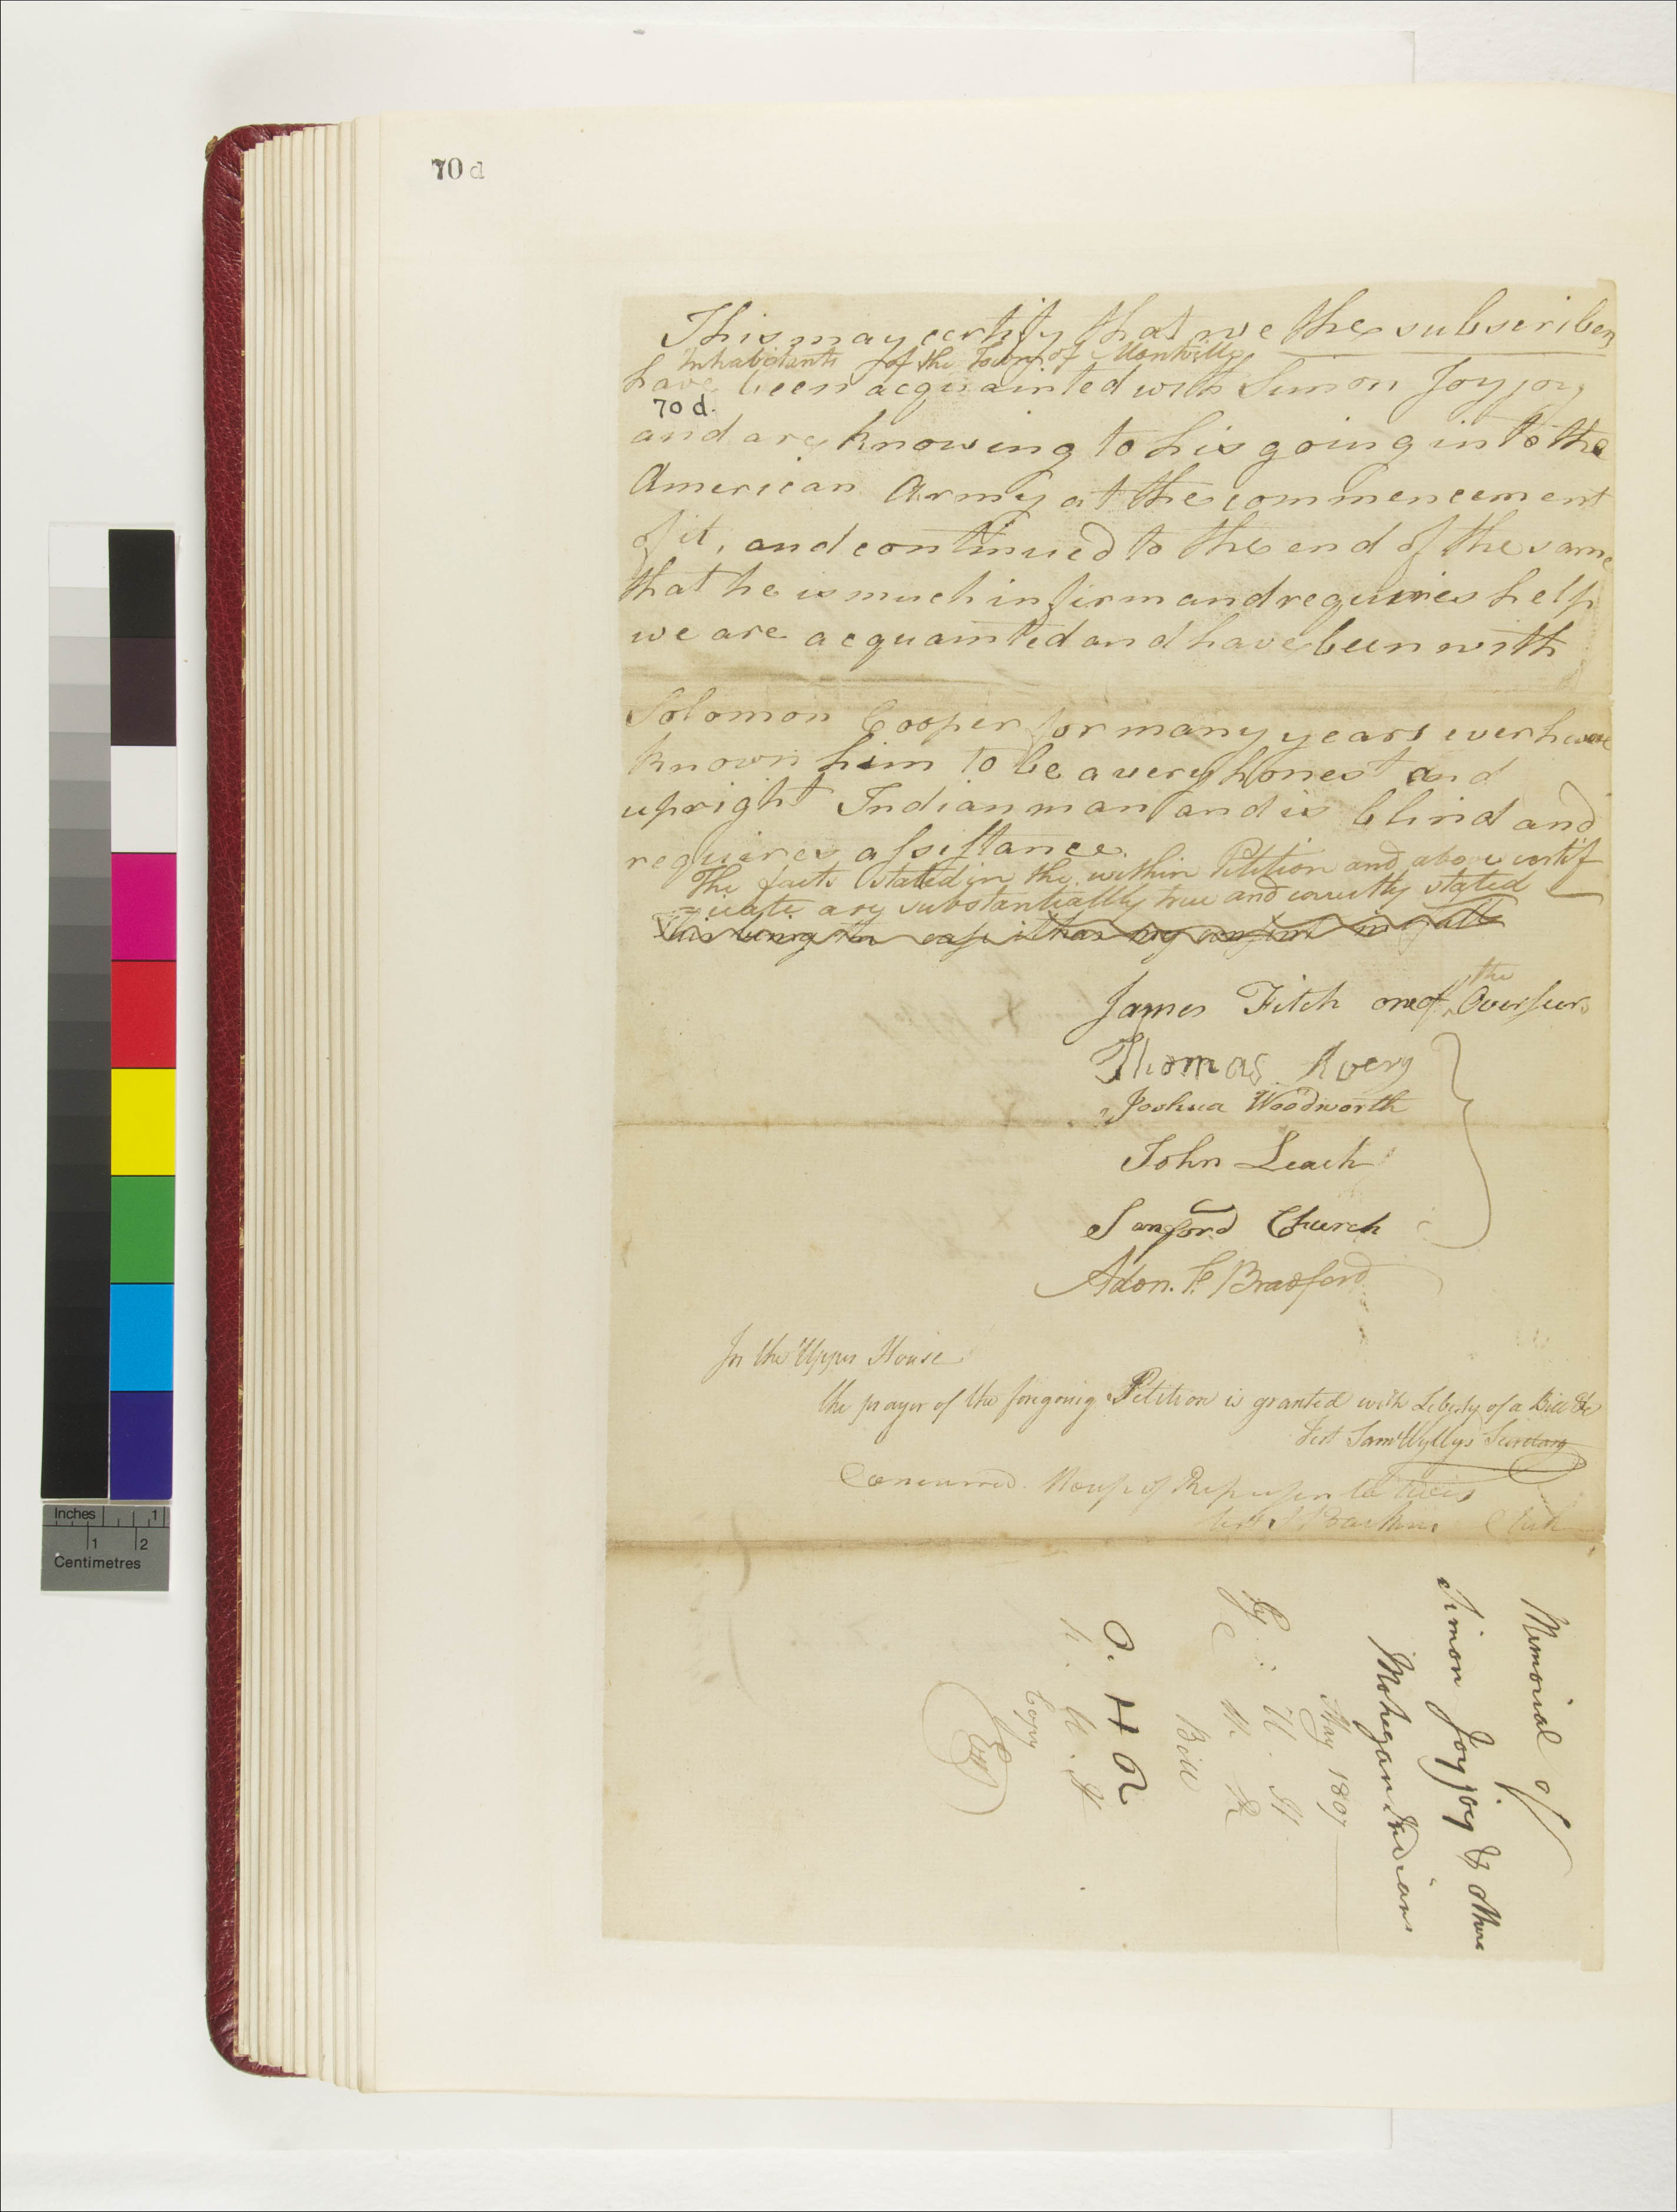 70 d
This may certify that we the subscribers
Inhabitants of the Town of Montville
have been acquainted with Simon Joyjoy
70 d.
and are knowing to his going into the
American Army at the commencement
of it, and continued to the end of the same
that he is much infirm and requires help
we are acquainted and have been with
Solomon Cooper for many years ever have
known him to be a very honest and
upright Indian man and is blind and
requires assistance.
The facts stated in the within Petition and above certif
=icate are substantially true and correctly stated
This being the case it has my consent in full
the
James Fitch one of Overseers
Thomas Avery
Joshua Woodworth
John Leach
Sanford Church
Adon. F. Bradford
In the Upper House
the prayer of the foregoing Petition is granted with Liberty of a Bill &c
Test Saml Wyllys Secretary
Concurred. House of Representatives
test Clerk
Memorial of
Simon Joyjoy & others
Mohegan Indians
May 1807
U. H.
R
Bill
O. H R
U. H
Copy
Inches 1
1 2
Centimetres